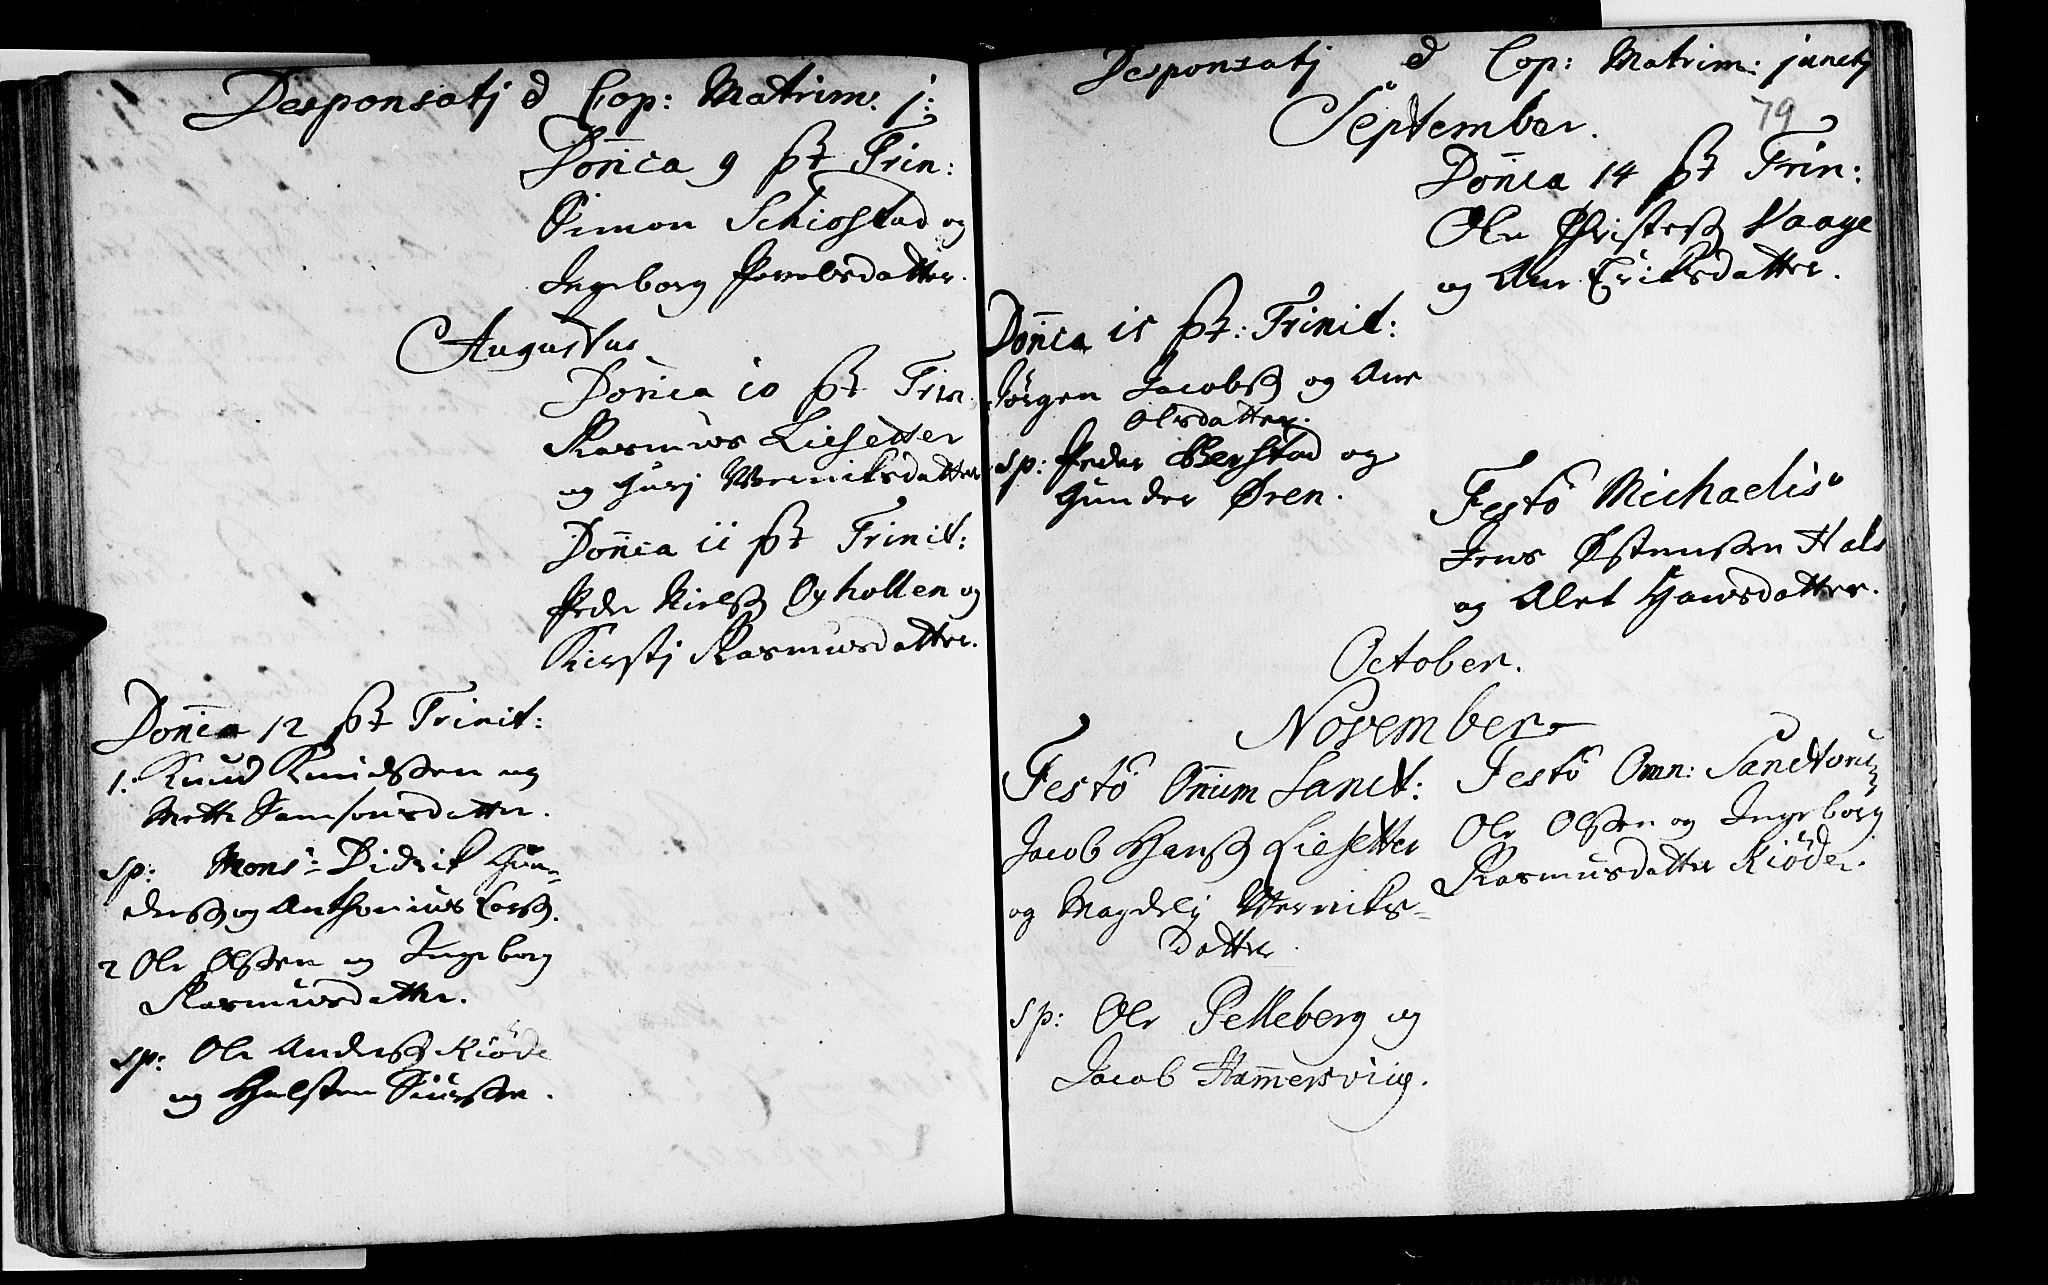 Desponsatj & Cop: Matrim: j:
Dom̄ca 9 pt Trin:
Simon Schiostad og
Ingeborg Povelsdatter.
Augustus
Dom̄ca 10 pt Trin.
Rasmus Liesetter
og Gurj Werniksdatter
Dom̄ca 11 pt Trinit:
Peder Nielss Oxhollen og
Kierstj Rasmusdatter.
Dom̄ca 12 pt Trinit:
1. Knud Knudssen og
Mette Samsonsdatter.
sp: Mons: Didrik Gun-
derss og Anthonius Larss.
2 Ole Olssen og Ingeborg
Rasmusdatter.
sp: Ole Anderss Kiöde
og Halsten Siurssen.
Desponsatj & Cop: Matrim: junctj
79
September.
Dom̄ca 14 pt Trin:
Ole Vaage
og Ane Eriksdatter.
Dom̄ca 15 pt: Trinit:
Jörgen Jacobss og Ane
Olsdatter.
sp: Peder Berstad og
Gunder Øren.
Festo Michaelis
Jens Østenssen Hals
og Alet Hansdatter.
October.
November
Festo Om̄ium Sanct:
Jacob Hanss Liesetter
og Magdely Werniks-
datter.
sp: Ole Pelleberg og
Jacob Ham̄ersviig.
Festo Omn: Sanctorum
Ole Olssen og Ingeborg
Rasmusdatter Kiöde.